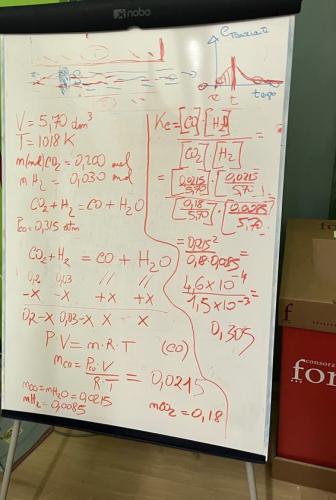 nobo
V = 5,70 dm³
T = 1018 K
n(mol) CO₂ = 0,200 mol
n H₂ = 0,030 mol
CO₂ + H₂ = CO + H₂O
Pco = 0,315 atm
CO₂ + H₂ = CO + H₂O
0,2 0,03 // //
-x -x +x +x
0,2-x 0,03-x x x
PV = n·R·T (CO)
nco = Pco·V / R·T = 0,0215
nco = nH₂O = 0,0215
nH₂ = 0,0085
nco₂ = 0,18
t
Kc = [CO]·[H₂O] / [CO₂]·[H₂] =
= [0,0215 / 5,70]·[0,0215 / 5,70] / [0,18 / 5,70]·[0,0085 / 5,70] =
= 0,0215² / 0,18·0,0085 =
4,6 × 10⁻⁴ / 1,5 × 10⁻³ =
0,305
f
consorz
for